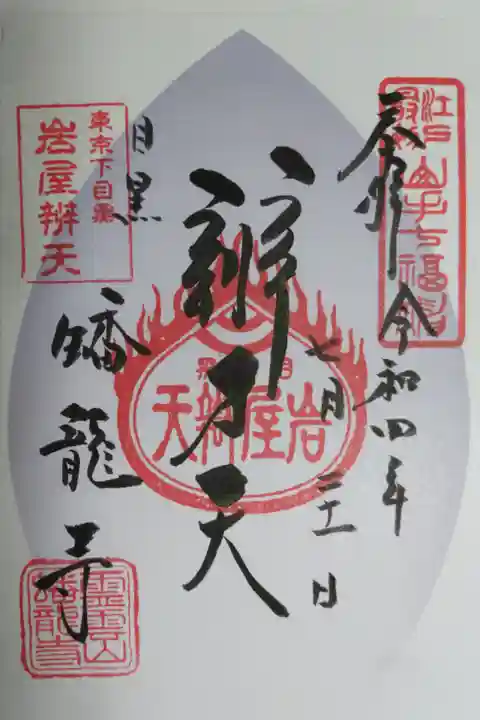 奉拝
令和四年
七月三十一日
辨才天
目黒
蟠龍寺
江戸最初
山手七福神
目黒
岩屋辨天
東京下目黒
岩屋辨天
霊雲山
蟠龍寺